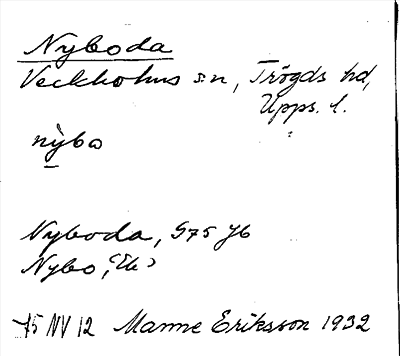 Nyboda
Veckholms sn, Trögds hd,
Upps. l.
nybo
Nyboda, 975 Jb
Nybo, (Ek)
75 NV 12 Manne Eriksson 1932